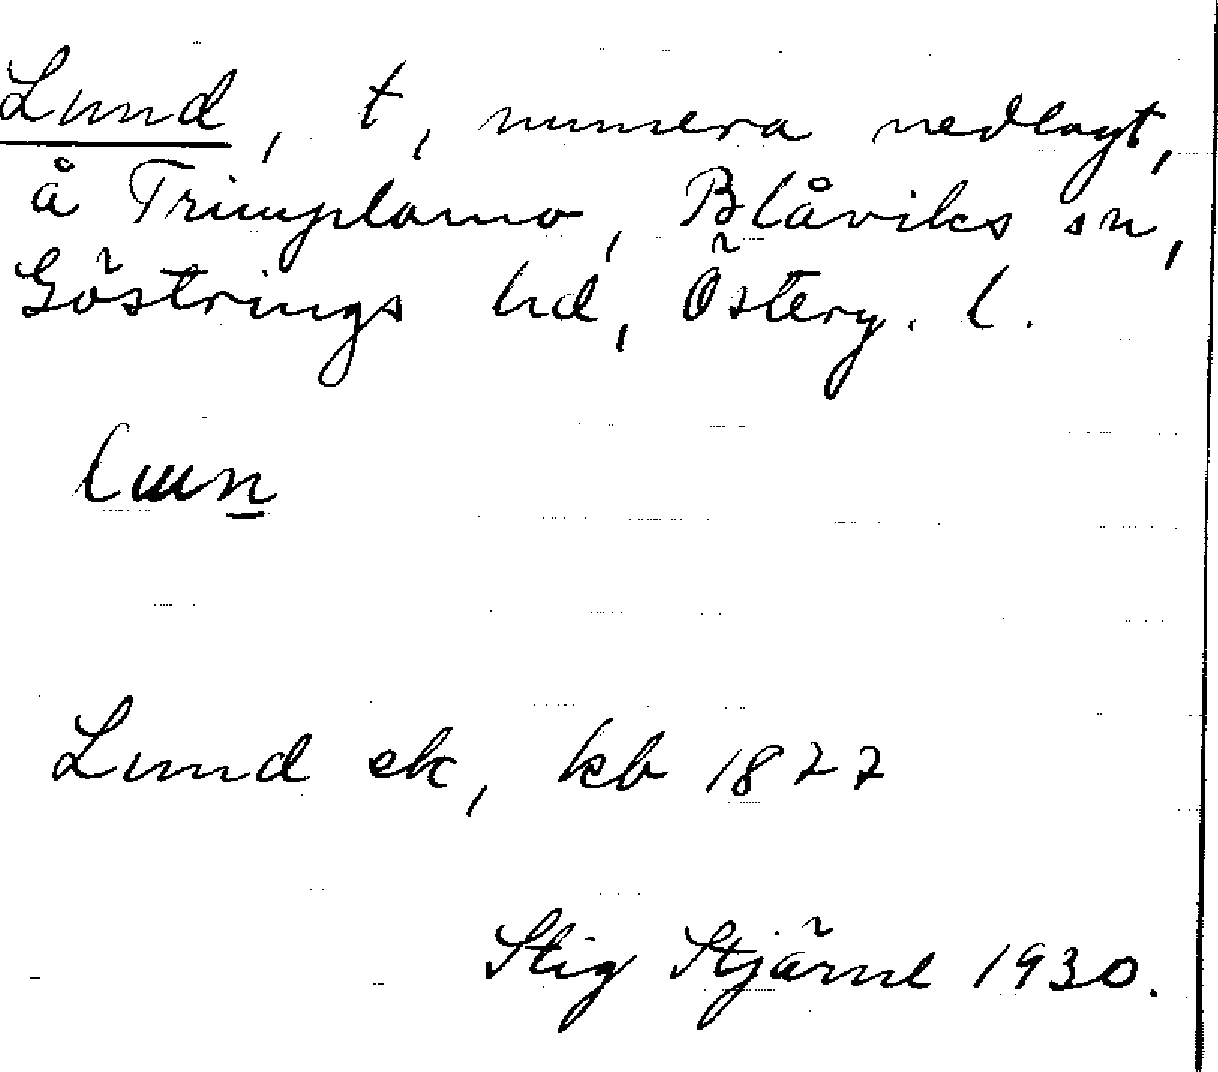 Lund, t, numera nedlagt,
å Trimplamo, Blåviks sn,
Göstrings hd, Österg. l.
Lund ek, kb 1877
Stig Stjärne 1930.